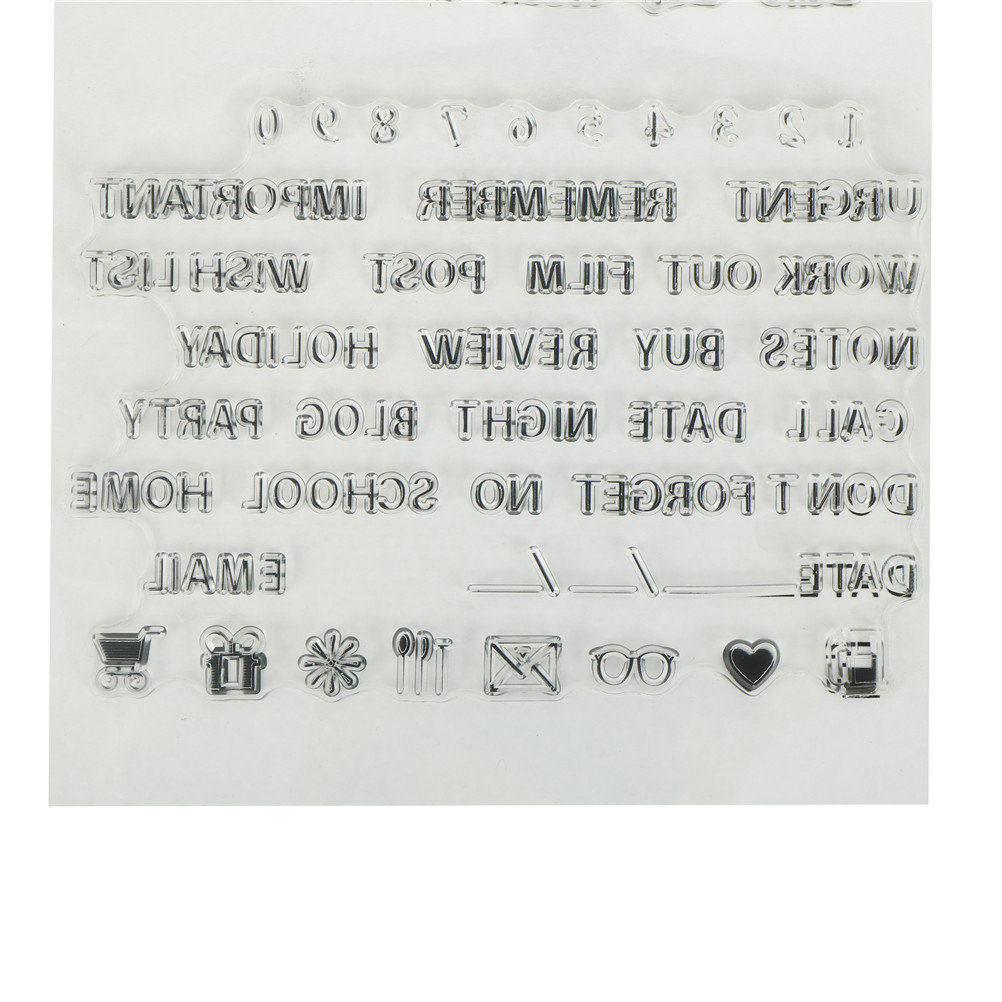 1 2 3 4 5 6 7 8 9 0
URGENT REMEMBER IMPORTANT
WORK OUT FILM POST WISH LIST
NOTES BUY REVIEW HOLIDAY
CALL DATE NIGHT BLOG PARTY
DON'T FORGET NO SCHOOL HOME
DATE ____\__\__ EMAIL